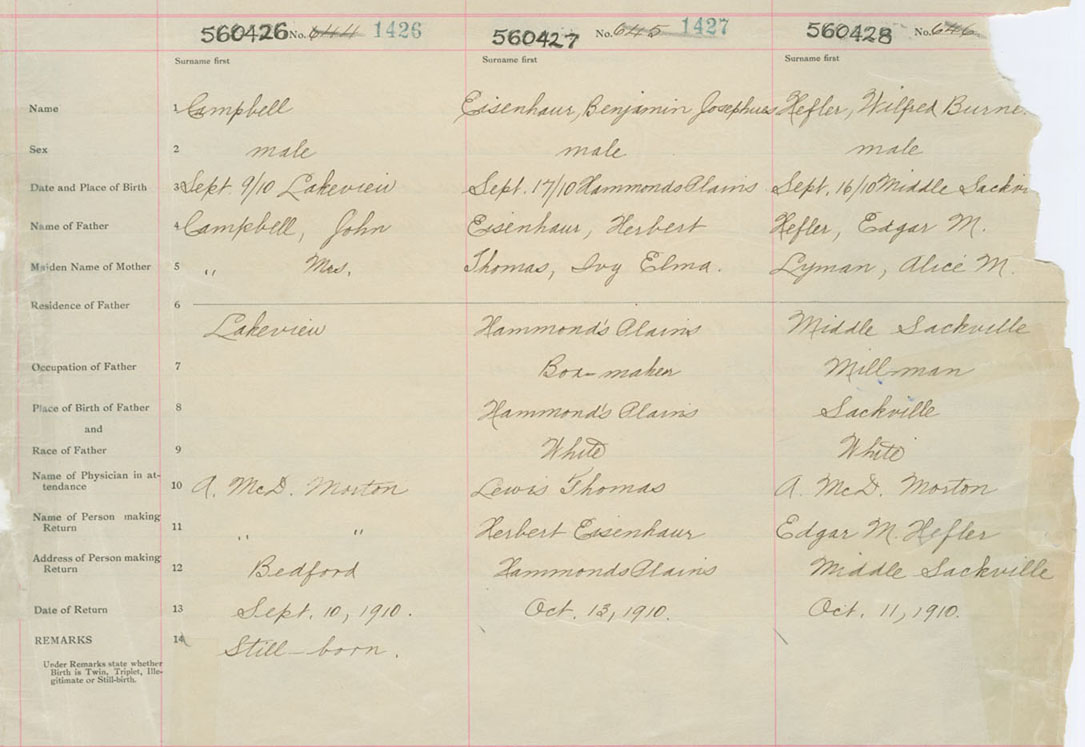 560426 No. 644 1426 560427 No. 645 1427 560428 No. 646
Surname first Surname first Surname first
Name 1 Campbell Eisenhaur, Benjamin Josephues Hefler, Wilfred Burne
Sex 2 male male male
Date and Place of Birth 3 Sept 9/10 Lakeview Sept. 17/10 Hammonds Plains Sept. 16/10 Middle Sackvi
Name of Father 4 Campbell, John Eisenhaur, Herbert Hefler, Edgar M.
Maiden Name of Mother 5 " Mrs. Thomas, Ivy Elma. Lyman, Alice M.
Residence of Father 6
Lakeview Hammond's Plains Middle Sackville
Occupation of Father 7 Box-maker Millman
Place of Birth of Father 8 Hammond's Plains Sackville
and
Race of Father 9 White White
Name of Physician in at-
tendance 10 A. McD. Morton Lewis Thomas A. McD. Morton
Name of Person making
Return 11 " " Herbert Eisenhaur Edgar M. Hefler
Address of Person making
Return 12 Bedford Hammonds Plains Middle Sackville
Date of Return 13 Sept. 10, 1910. Oct. 13, 1910. Oct. 11, 1910.
REMARKS 14 Still-born.
Under Remarks state whether
Birth is Twin, Triplet, Ille-
gitimate or Still-birth.